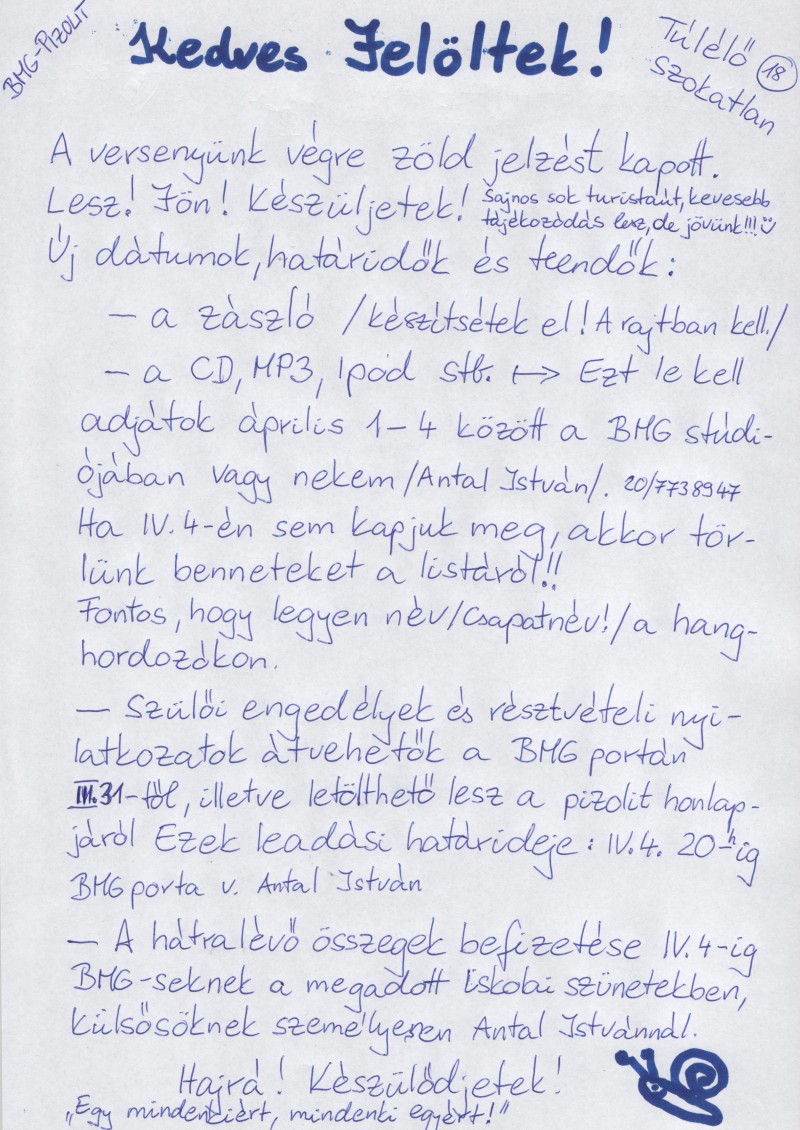 BMG-PIZOLIT
Kedves Jelöltek!
Túlélő 18
szokatlan
A versenyünk végre zöld jelzést kapott.
Lesz! Jön! Készüljetek! Sajnos sok turistaút, kevesebb
tájékozódás lesz, de jövünk!!!
Új dátumok, határidők és teendők:
– a zászló /készítsétek el! A rajtban kell./
– a CD, MP3, Ipod stb. ↦ Ezt le kell
adjátok április 1–4 között a BMG stúdi-
ójában vagy nekem /Antal István/. 20/7738947
Ha IV. 4-én sem kapjuk meg, akkor tör-
lünk benneteket a listáról!!
Fontos, hogy legyen név /Csapatnév!/ a hang-
hordozókon.
– Szülői engedélyek és résztvételi nyi-
latkozatok átvehetők a BMG portán
III.31-től, illetve letölthető lesz a pizolit honlap-
járól Ezek leadási határideje: IV.4. 20h-ig
BMG porta v. Antal István
– A hátralévő összegek befizetése IV.4-ig
BMG-seknek a megadott iskolai szünetekben,
külsősöknek személyesen Antal Istvánnál.
Hajrá! Készülődjetek!
„Egy mindenkiért, mindenki egyért!"